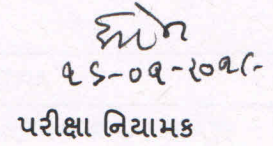 ૧૬-૦૧-૨૦૧૮
પરીક્ષા નિયામક